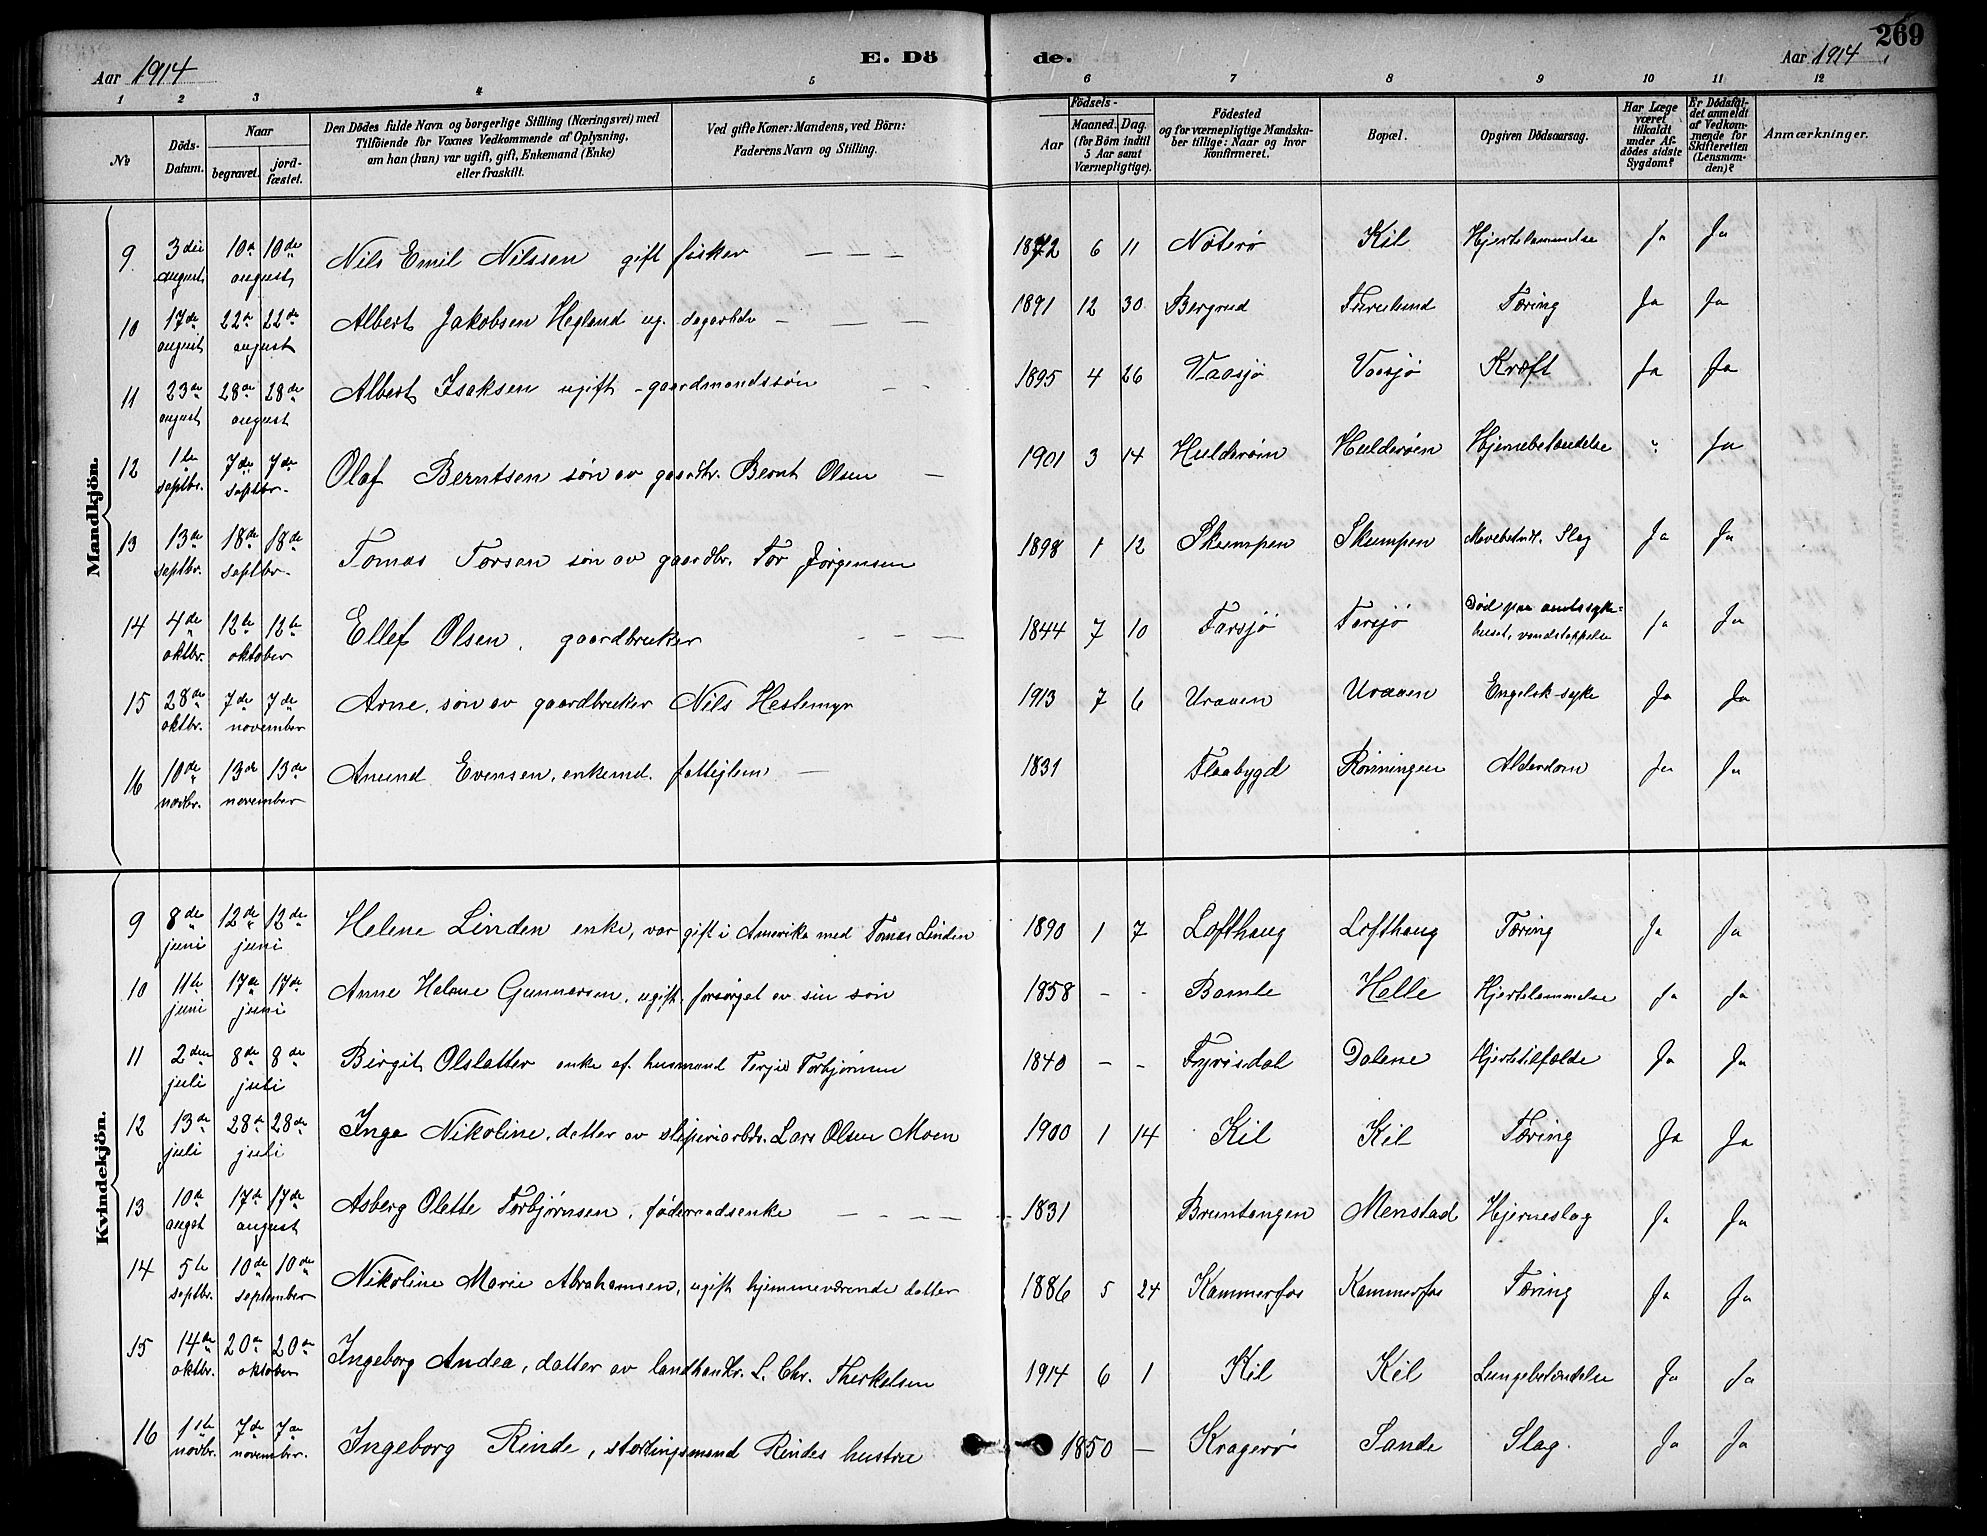 269
Aar 1914 E. Dö de. Aar 1914
1 2 3 4 5 6 7 8 9 10 11 12
№ Döds-Datum. Naar begravet. jord-fæstet. Den Dödes fulde Navn og borgerlige Stilling (Næringsvei) med Tilföiende for Voxnes Vedkommende af Oplysning, om han (hun) var ugift, gift, Enkemand (Enke) eller fraskilt. Ved gifte Koner: Mandens, ved Börn: Faderens Navn og Stilling. Födsels- Aar Maaned. Dag. (for Börn indtil 5 Aar samt Værnepligtige). Födested og for værnepligtige Mandskaber tillige: Naar og hvor konfirmeret. Bopæl. Opgiven Dödsaarsag. Har Læge været tilkaldt under Afdödes sidste Sygdom? Er Dödsfaldet anmeldt af Vedkommende for Skifteretten (Lensmanden)? Anmærkninger.
Mandkjön.
9 3die august 10de 10de august Nils Emil Nilssen gift fisker — — — 1872 6 11 Nøterø Kil Hjertelammelse Ja Ja
10 17de august 22de 22de august Albert Jakobsen Hegland ug. dagarbdr — — — 1891 12 30 Bergrud Furulund Tæring Ja Ja
11 23de august 28de 28de august Albert Isaksen ugift - gaardmandssøn — — 1895 4 26 Vaasjø Vaasjø Kræft Ja Ja
12 1te septbr. 7de 7de septbr. Olaf Berntsen søn av gaardbr. Bernt Olsen — 1901 3 14 Hulderøin Hulderøen Hjernebetændelse " Ja
13 13de septbr. 18de 18de septbr. Tomas Torsen søn av gaardbr. Tor Jørgensen 1898 1 12 Skumpen Skumpen Mavebetnd. Slag Ja Ja
14 4de oktbr. 12te 12te oktober Ellef Olsen, gaardbruker — — — 1844 7 10 Farsjø Farsjø Död paa amtssyke=huset, vandstoppelse Ja Ja
15 28de oktbr. 7de 7de november Arne, søn av gaardbruker Nils Hestemyr 1913 7 6 Uraaen Uraaen Engelsk syke Ja Ja
16 10de novbr. 13de 13de november Anund Evensen, enkemd. fattiglem — 1831 Flaabygd Rønningen Alderdom Ja Ja
Kvindekjön.
9 8de juni 12de 12de juni Helene Linden enke, var gift i Amerika med Tomas Linden 1890 1 7 Lofthaug Lofthaug Tæring Ja Ja
10 11te juni 17de 17de juni Anne Helene Gunnarsen, ugift, forsørget av sin søn 1858 - - Bamle Helle Hjertelammelse Ja Ja
11 2den juli 8de 8de juli Birgit Olslatter enke af. husmand Terjie Torbjørnsen 1840 - - Fyrisdal Dalene Hjertetilfælde Ja Ja
12 13de juli 28de 28de juli Inga Nikoline, datter av sliperiarbdr. Lars Olsen Moen 1900 1 14 Kil Kil Tæring Ja Ja
13 10de augst 17de 17de august Asberg Olette Torbjørnsen, føderaadsenke — — — — 1831 Bruntangen Menstad Hjerneslag Ja Ja
14 5te septbr. 10de 10de september Nikoline Marie Abrahamsen, ugift hjemmeværende datter 1886 5 24 Kammerfos Kammerfos Tæring Ja Ja
15 14de oktbr. 20de 20de oktober Ingeborg Andea, datter av landhandlr. L. Chr. Therkelsen 1914 6 1 Kil Kil Lungebetændelse Ja Ja
16 1te novbr. 7de 7de november. Ingeborg Rinde, stortingsmand Rindes hustru 1850 — Kragerø Sande Slag. Ja Ja